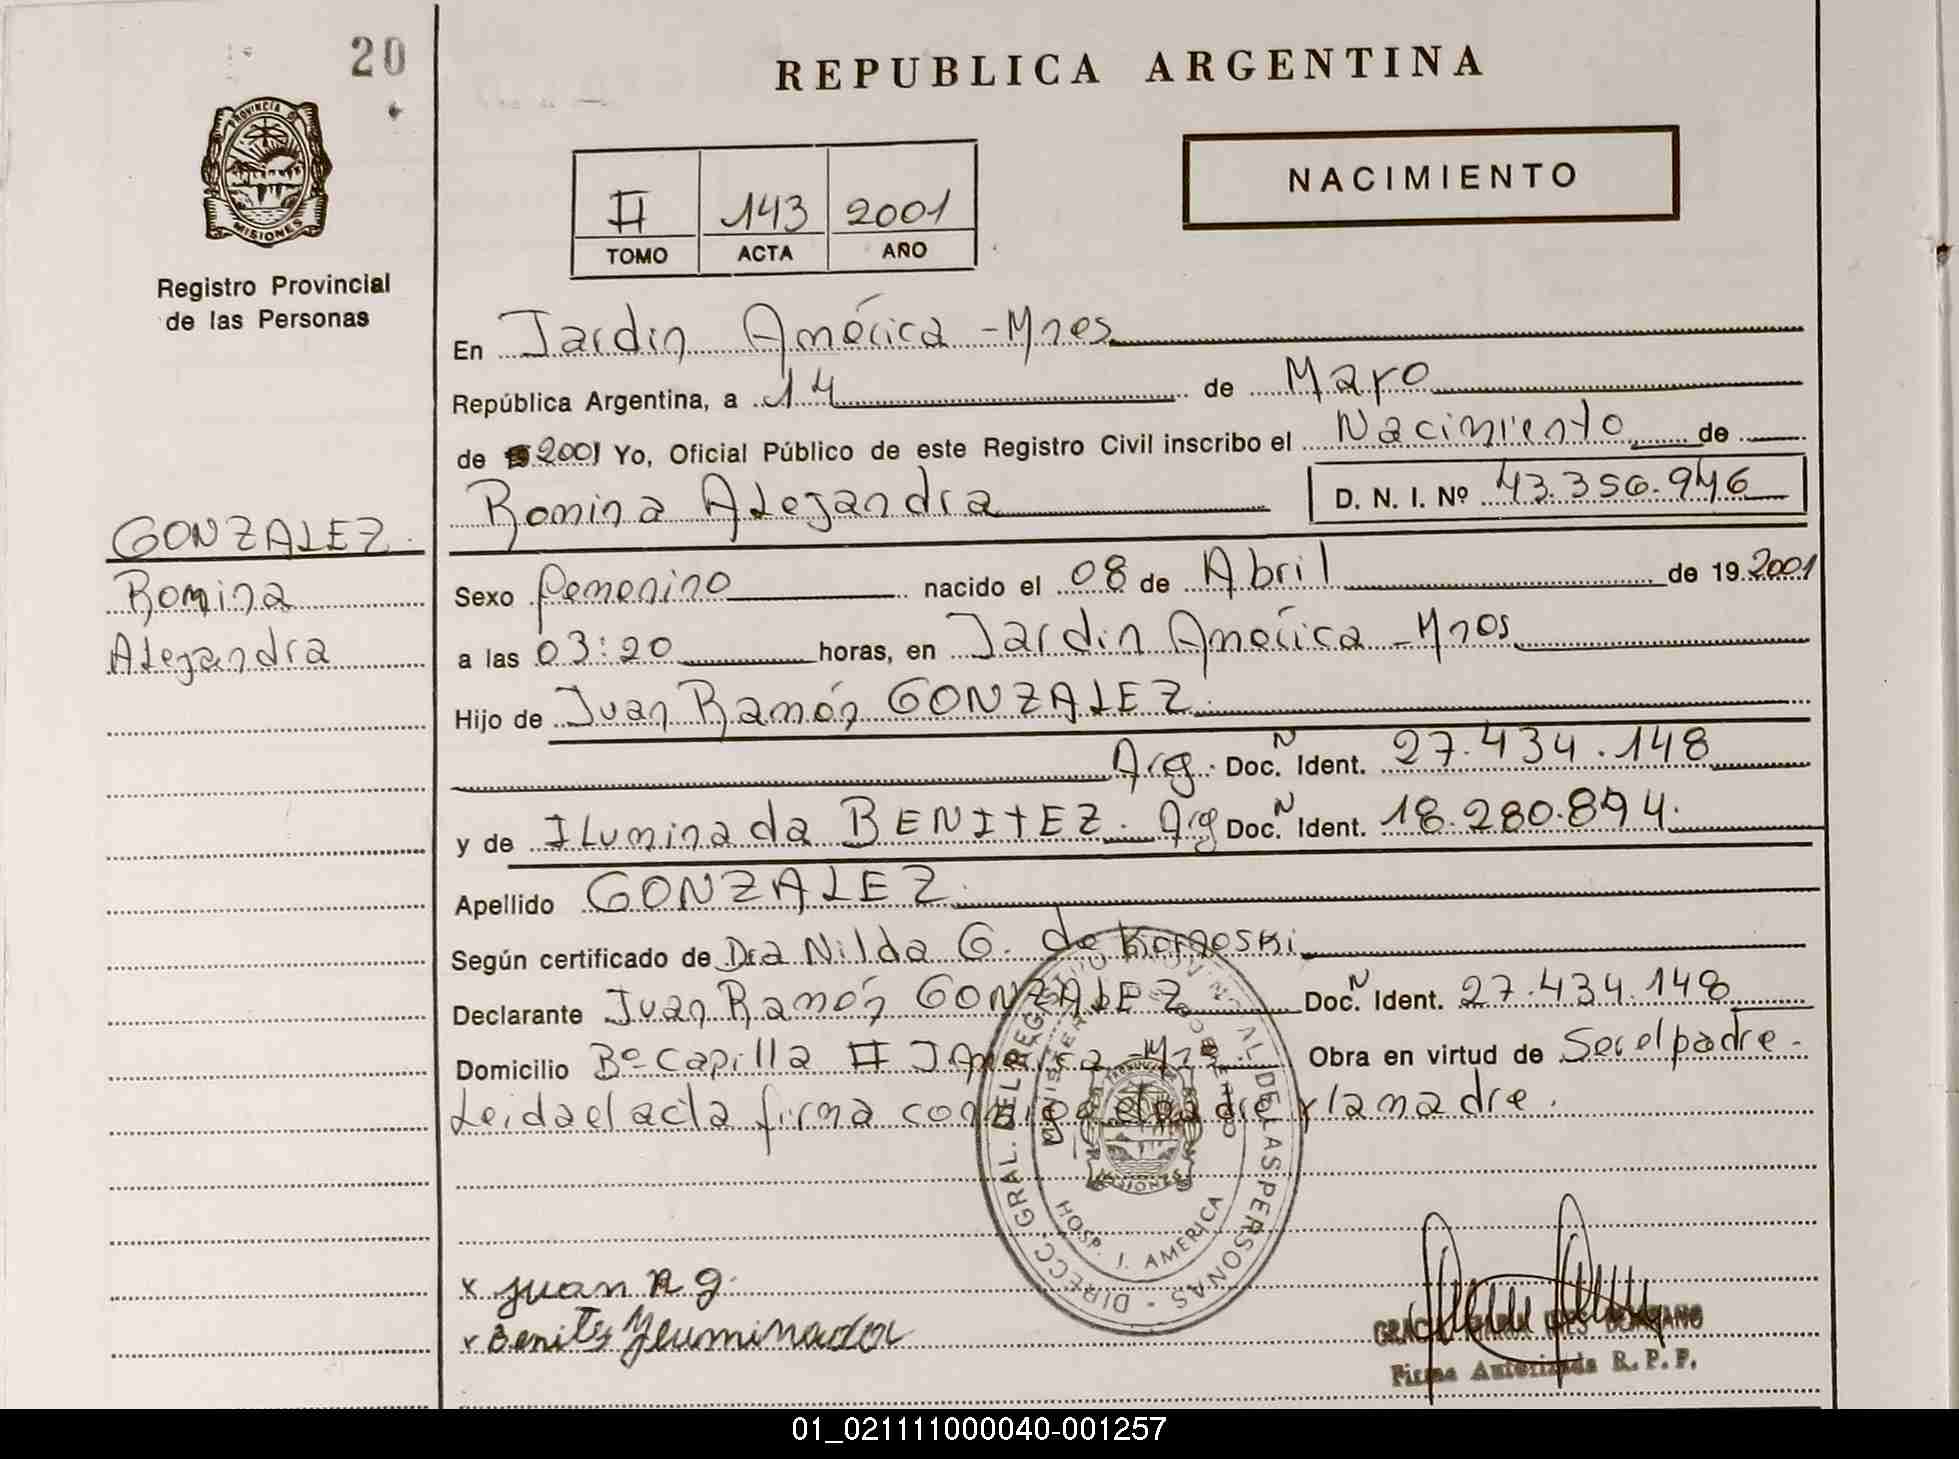 20
REPUBLICA ARGENTINA
PROVINCIA DE
MISIONES
Registro Provincial
de las Personas
II 143 2001
TOMO ACTA AÑO
NACIMIENTO
En Jardin América - Mnes
República Argentina, a 14 de Mayo
de 2001 Yo, Oficial Público de este Registro Civil inscribo el Nacimiento de
Romina Alejandra D. N. I. Nº 43.356.946
GONZALEZ.
Romina
Alejandra
Sexo femenino nacido el 08 de Abril de 19 2001
a las 03:20 horas, en Jardin América - Mnes
Hijo de Juan Ramón GONZALEZ.
Arg. Doc. N Ident. 27.434.148
y de Iluminada BENITEZ. Arg Doc. N Ident. 18.280.894.
Apellido GONZALEZ.
Según certificado de Dra Nilda G. de
Declarante Juan Ramón GONZALEZ Doc. N Ident. 27.434.148
Domicilio Bº Capilla II J América - Mnes Obra en virtud de Ser el padre.
Leida el acta firma conmigo el padre y la madre.
DIRECC. GRAL. DEL REGISTRO PROVINCIAL DE LAS PERSONAS
HOSP. J. AMERICA
MISIONES
x Juan R g.
x Benites
Firma Autorizada R. P. P.
01_021111000040-001257